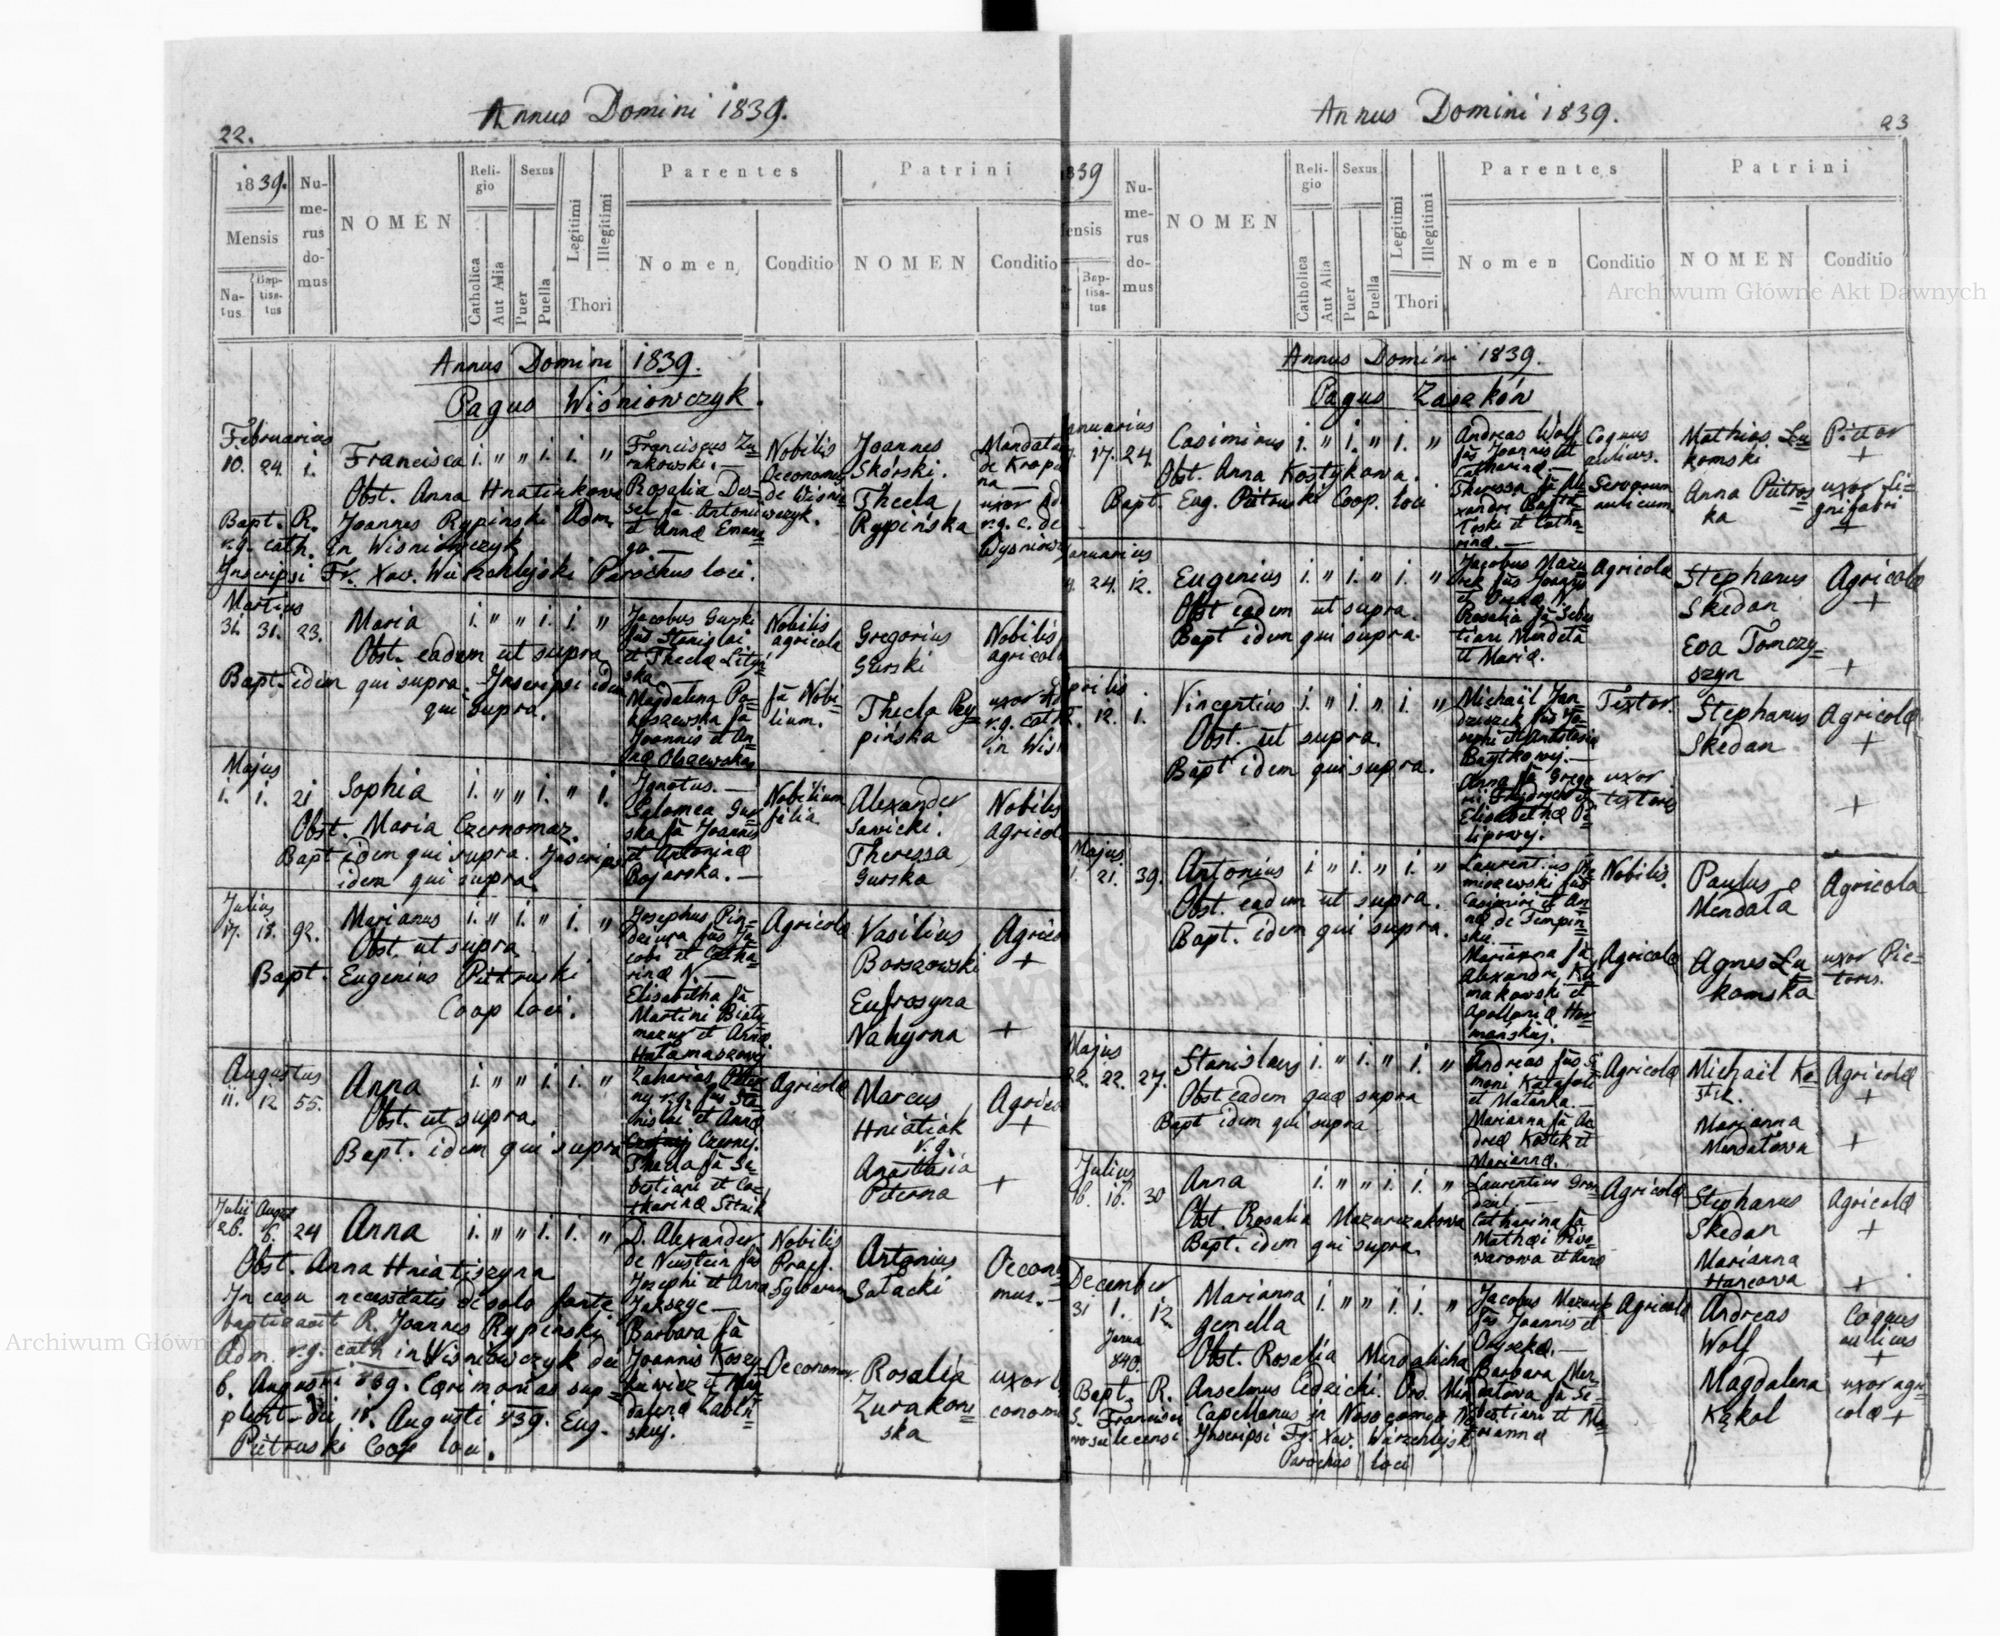 22.
Annus Domini 1839.
1839.
Mensis
Natus
Baptisatus
Numerus domus
NOMEN
Religio
Catholica
Aut Alia
Sexus
Puer
Puella
Legitimi
Illegitimi
Thori
Parentes
Nomen
Conditio
Patrini
NOMEN
Conditio
Annus Domini 1839.
Pagus Wiśniowczyk.
Februarius
10. 24. 1. Francisca i. " " i. i. "
Obst. Anna Hnatiukowa
Bapt. R. Joannes Rypinski Adm.
r.g. cath. in Wisniowczyk
Inscripsi Fr. Xav. Wierzchlejski Parochus loci.
Franciscus Zu=
rakowski. —
Rosalia Des=
sel fa Antonii
et Anna
Nobilis
Oeconomus
de Wisnio=
wczyk.
Joannes
Skórski.
Thecla
Rypińska
Mandata
de Kropi
na —
uxor Ad
r.g. c. de
Wysniow
Martius
31. 31. 23. Maria i. " " i. i. "
Obst. eadem ut supra
Bapt. idem qui supra. Inscripsi idem
qui supra.
Jacobus Gurski
fus Stanislai
et Theclæ
ska
Magdalena
Joannis et An=
næ Olszewska
Nobilis
agricola
fa Nobi=
lium.
Gregorius
Gurski
Thecla Ry=
pińska
Nobilis
agricola
uxor
r.g. cath
in Wis
Majus
1. 1. 21 Sophia i. " " i. " i.
Obst. Maria Czernomaz.
Bapt idem qui supra. Inscripsi
idem qui supra.
Ignotus. —
Salomea Gur=
ska fa Joannis
et Antoninæ
Bojarska. —
Nobilium
filia
Alexander
Sawicki.
Theressa
Gurska
Nobilis
agricol
Julius
17. 18. 92. Marianus i. " i. " i. "
Obst. ut supra
Bapt. Eugenius Pietruski
Coop loci.
Josephus Pin=
dziura fus Ja=
cobi et Catha=
rinæ N —
Elisabetha fa
Martini
et Annæ
Agricola
Vasilius
Borszowski
Eufrosyna
Nahyrna
Agrico
+
+
Augustus
11. 12 55. Anna i. " " i. i. "
Obst. ut supra
Bapt. idem qui supra
Zacharias
r.g. fus Sta=
nislai et Annæ
Czerney.
Thecla fa Se=
bestiani et Ca=
tharinæ Sitnik
Agricola
Marcus
Hniatiak
r.g.
Anastasia
Piterna
Agrico
+
+
Julii August
26. 6. 24 Anna i. " " i. i. "
Obst. Anna Hniatiszyna
In casu necessitatis de solo fonte
baptisavit R. Joannes Rypinski
Adm. r.g. cath in Wisniowczyk die
6. Augusti 839. Cærimonias sup=
plevit die 18. Augusti 839. Eug.
Pietruski Coop loci.
D. Alexander
de Neustein fus
Josephi et Anna
Jakszyc —
Barbara fa
Joannis Koszy=
kiewicz et Mag=
dalenæ
Nobilis
Præf.
Sylvarum
Oeconomus.
Antonius
Sałacki
Rosalia
Zurakow=
ska
Oecono
mus. —
uxor
conom
23
Annus Domini 1839.
1839
Mensis
Baptisatus
Numerus domus
NOMEN
Religio
Catholica
Aut Alia
Sexus
Puer
Puella
Legitimi
Illegitimi
Thori
Parentes
Nomen
Conditio
Patrini
NOMEN
Conditio
Archiwum Główne Akt Dawnych
Annus Domini 1839.
Pagus Zaseków
anuarius
17. 24. Casimirus i. " i. " i. "
Obst. Anna Kostykowa.
Bapt. Eug. Pietruski Coop. loci
Andreas Wolf
fus Joannis et
Catharinæ —
Theressa fa Ale
xandri
et Catha=
rinæ. —
Coquus
aulicus.
Servorum
aulicum
Mathias Lu=
komski
Anna Pietros=
ka
Pictor
+
uxor li=
gnifabri
+
anuarius
24. 12. Eugenius i. " i. " i. "
Obst eadem ut supra.
Bapt idem qui supra.
Jacobus Mazu=
rek fus Joannis
et
Rosalia fa Sebes
tiani Merdeta
et Mariæ.
Agricola
Stephanus
Skedan
Eva Tomczy=
szyn
Agricola
+
+
prilis
12. 1. Vincentius i. " i. " i. "
Obst. ut supra.
Bapt idem qui supra.
Michaël
fus
et Anastasia
Anna fa Grego
rii et
Elisabethæ
Textor.
uxor
textoris
Stephanus
Skedan
Agricola
+
+
Majus
21. 39. Antonius i " i. " i. "
Obst. eadem ut supra.
Bapt. idem qui supra.
Laurentius
fus
Casimiri et An=
næ de Tempin=
ski —
Marianna fa
Alexandri Ku
makowski et
Apolloniæ
Nobilis.
Agricola
Paulus
Merdata
Agnes Lu=
komska
Agricola
uxor Pic=
toris.
Majus
22. 22. 27. Stanislaus i. " i. " i. "
Obst eadem quæ supra
Bapt idem qui supra
Andreas fus Si
moni
et Matanka. —
Marianna fa An
dreæ Kostek et
Mariannæ.
Agricola
Michaël Ko=
stek.
Marianna
Merdatowa
Agricola
+
+
Julius
16. 16. 30 Anna i. " " i. i. "
Obst. Rosalia Mazurczakowa
Bapt. idem qui supra.
Laurentius
Catharina fa
Mathæi
et Annæ
Agricola
Stephanus
Skedan
Marianna
Harcowa
Agricola
+
+
December
31 1. 12 Marianna i. " " i. i. "
gemella
Janua
840.
Obst. Rosalia Merdalicha
Bapt. R. Anselmus Cedzicki. Ord. Min
S. Francisci Capellanus in Nosocomio
Inscripsi Fr. Xav. Wierzchlejski
Parochus loci
Jacobus Mazurek
fus Joannis et
Oryszka. —
Barbara Mer=
datowa fa Se=
bestiani et Ma=
riannæ
Agricola
Andreas
Wolf
Magdalena
Kąkol
Coquus
aulicus
+
uxor agri=
colæ +
Archiwum Główne Akt Dawnych